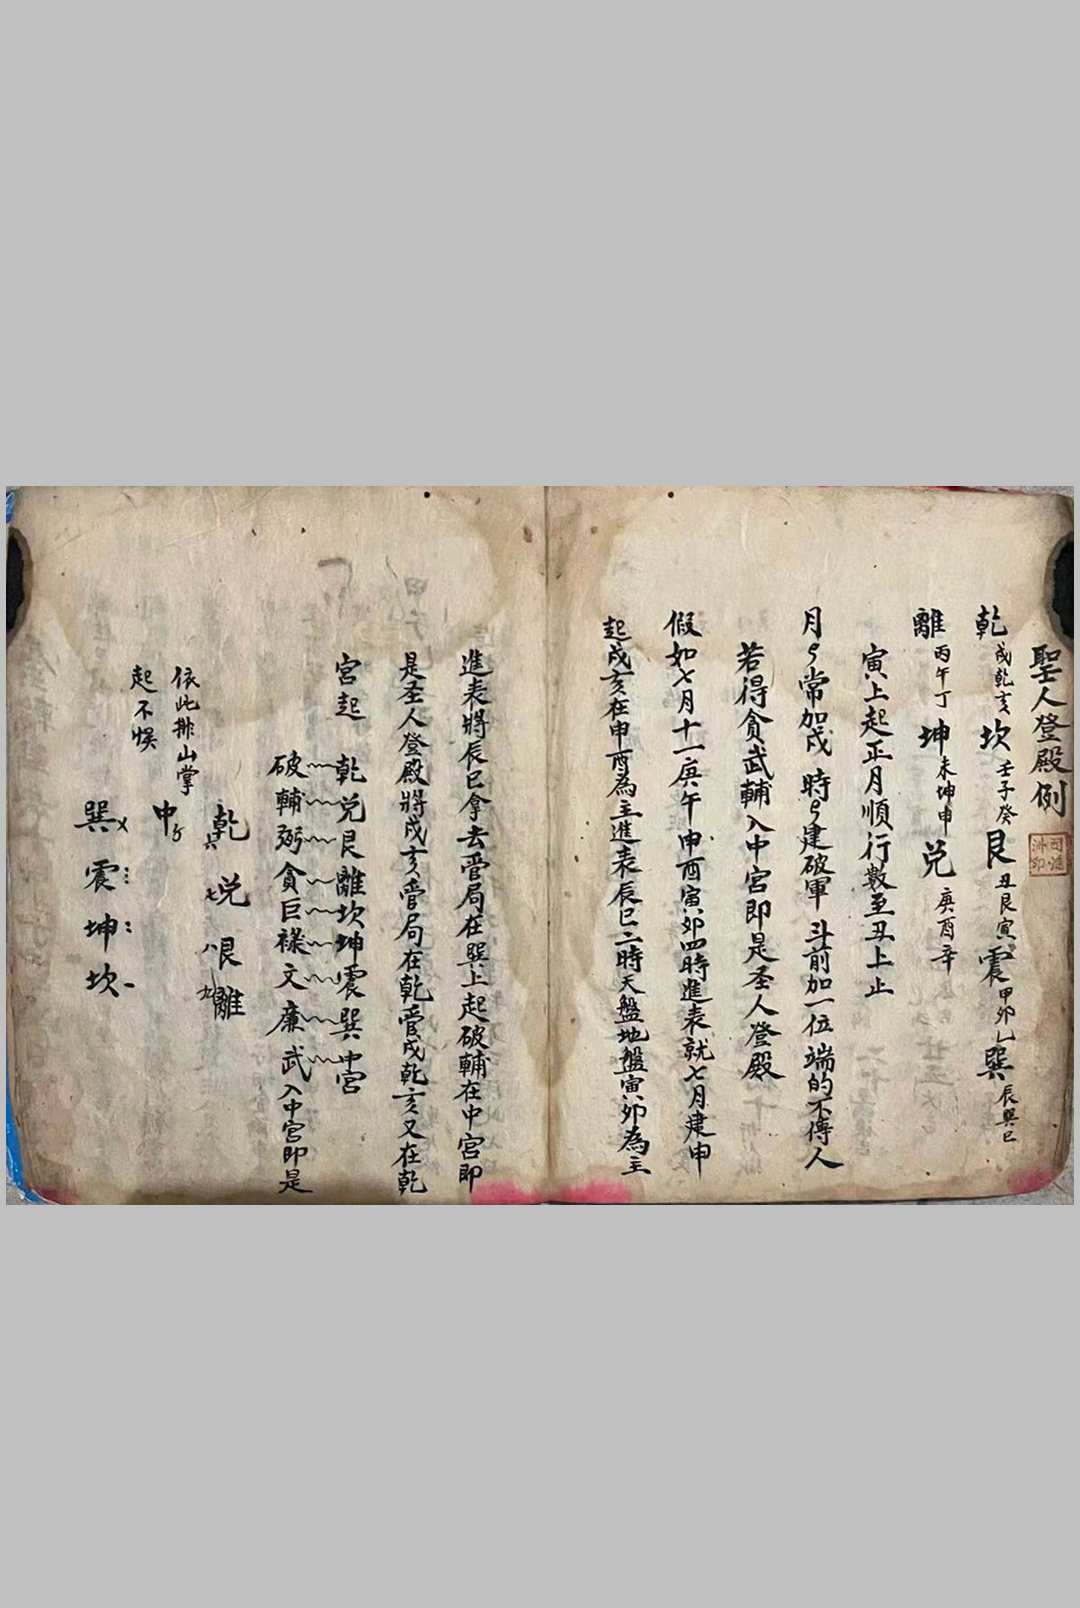 聖人登殿例
乾戌乾亥 坎壬子癸 艮丑艮寅 震甲卯乙 巽辰巽巳
離丙午丁 坤未坤申 兌庚酉辛
寅上起正月順行數至丑上止
月〻常加戌 時〻建破軍 斗前加一位 端的不傳人
若得貪武輔入中宮即是圣人登殿
假如七月十一庚午申酉寅卯四時進表就七月建申
起戌亥在申酉為主進表辰巳二時天盤地盤寅卯為主
進表將辰巳拿去管局在巽上起破輔在中宮即
是圣人登殿將戌亥管局在乾管戌乾亥又在乾
宮起 乾兌艮離坎坤震巽中宮
破輔弼貪巨祿文廉武入中宮即是
乾六 兌七 艮八 離九
依此排山掌 中〥
起不悞
巽〤 震〣 坤〢 坎〡